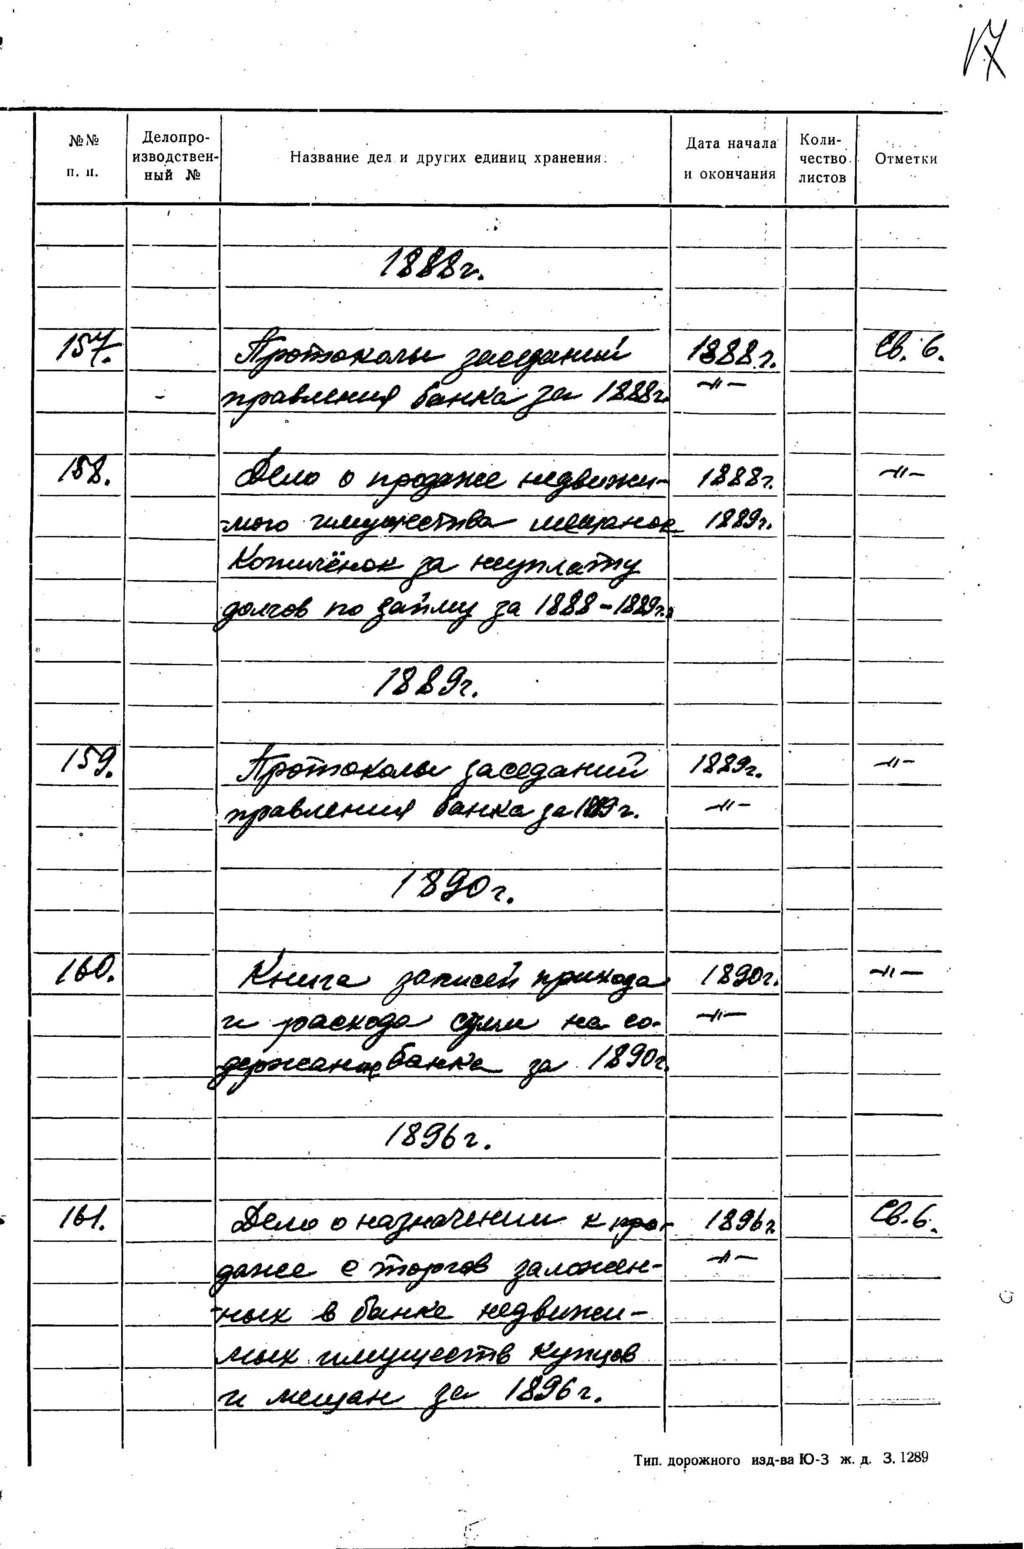 17
№№ п. п.
Делопроизводствен-
ный №
Название дел и других единиц хранения.
Дата начала
и окончания
Коли-
чество
листов
Отметки
1888г.
157. Протоколы заседаний 1888г. Св. 6.
правления банка за 1888г. —"—
158. Дело о продаже недвижи- 1888г. —"—
мого имущества мещанок 1889г.
за неуплату
долгов по займу за 1888-1889г.
1889г.
159. Протоколы заседаний 1889г. —"—
правления банка за 1889г. —"—
1890г.
160. Книга записей прихода 1890г. —"—
и расхода сумм на со- —"—
держание банка за 1890г.
1896г.
161. Дело о назначении к про- 1896г. Св. 6.
даже с торгов заложен- —"—
ных в банке недвижи-
мых имуществ купцов
и мещан за 1896г.
Тип. дорожного изд-ва Ю-З ж. д. З. 1289